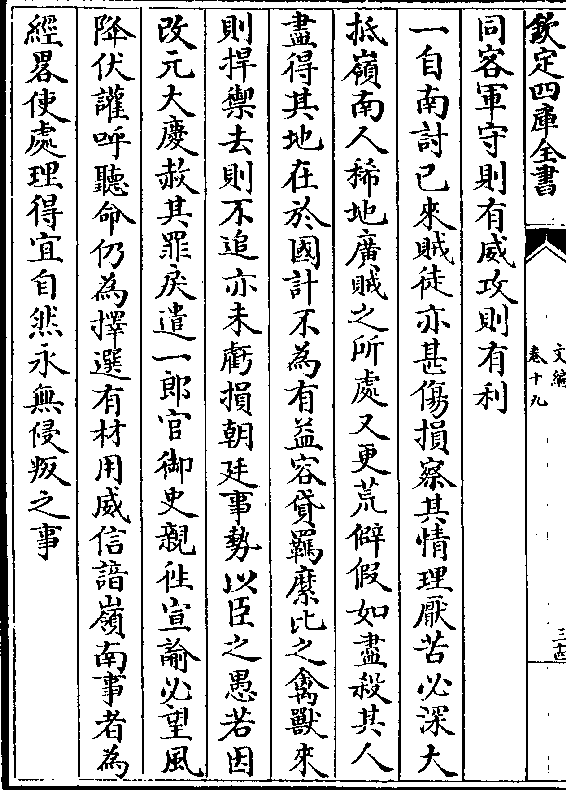 欽定四庫全書
文編
卷十九
三十四
同客軍守則有威攻則有利
一自南討已來賊徒亦甚傷損察其情理厭苦必深大
抵嶺南人稀地廣賊之所處又更荒僻假如盡殺其人
盡得其地在於國計不為有益容貸羈縻比之禽獸來
則捍禦去則不追亦未虧損朝廷事勢以臣之愚若因
改元大慶赦其罪戾遣一郎官御史親往宣諭必望風
降伏讙呼聽命仍為擇選有材用威信諳嶺南事者為
經畧使處理得宜自然永無侵叛之事